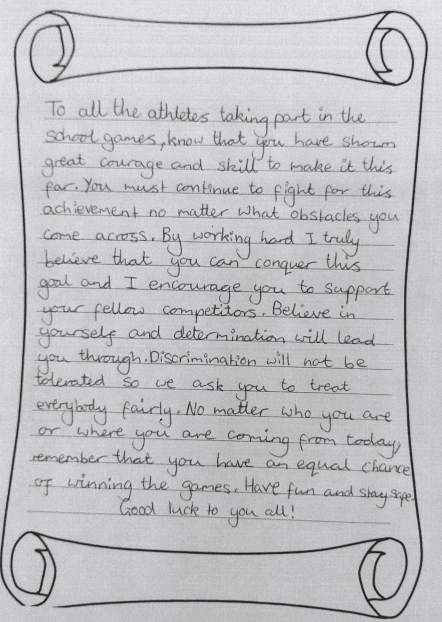 To all the athletes taking part in the
school games, know that you have shown
great courage and skill to make it this
far. You must continue to fight for this
achievement no matter what obstacles you
come across. By working hard I truly
believe that you can conquer this
goal and I encourage you to support
your fellow competitors. Believe in
yourself and determination will lead
you through. Discrimination will not be
tolerated so we ask you to treat
everybody fairly. No matter who you are
or where you are coming from today,
remember that you have an equal chance
of winning the games. Have fun and stay safe.
Good luck to you all!